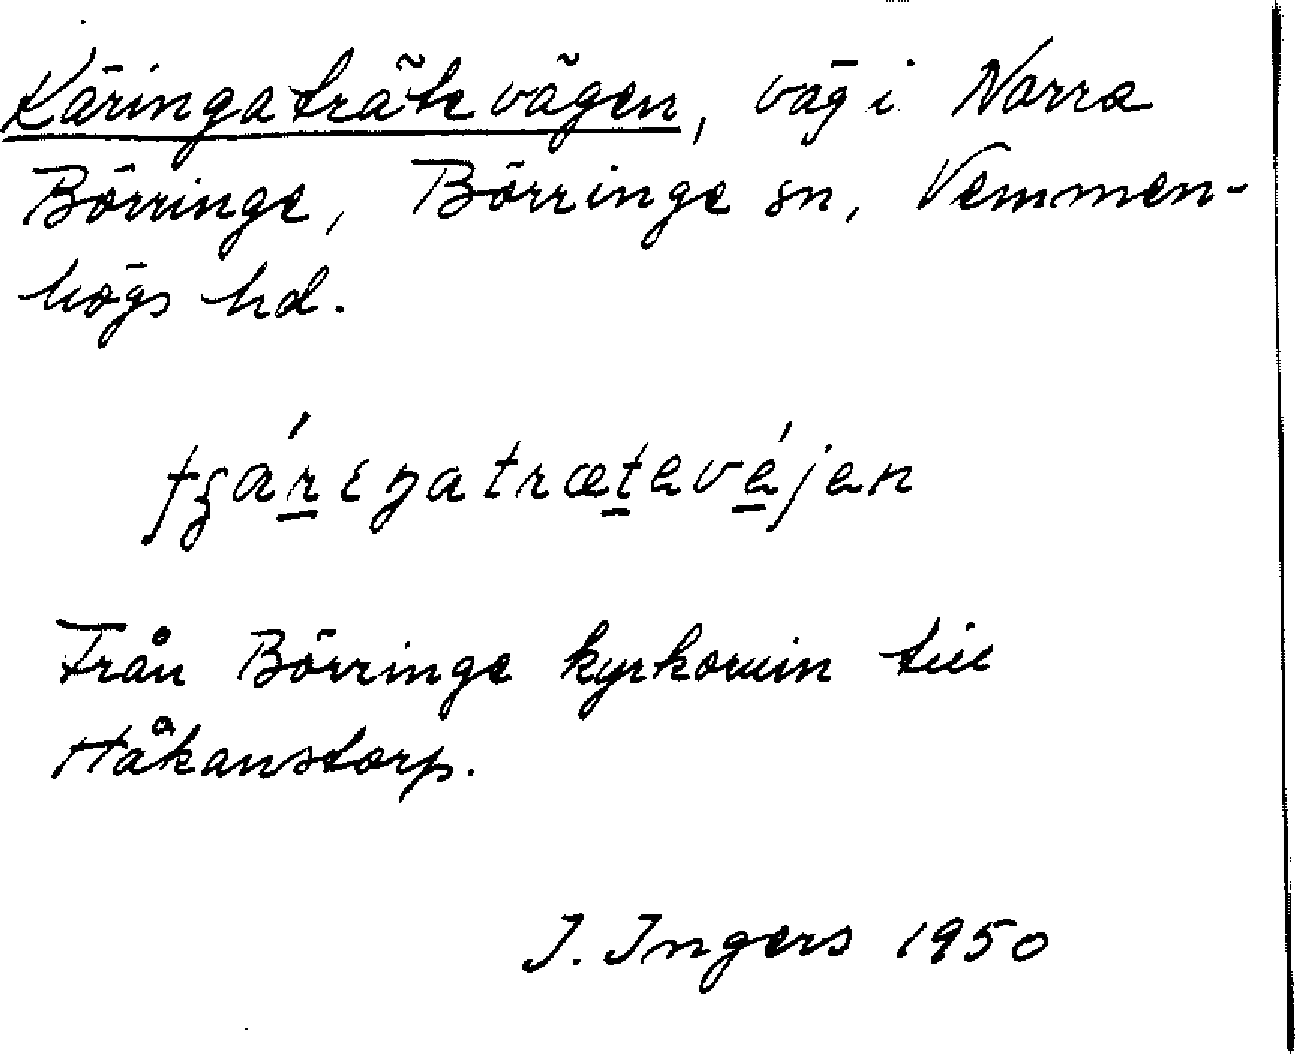 Käringaträtevägen, väg i Norra
Börringe, Börringe sn, Vemmen-
högs hd.
Från Börringe kyrkoruin till
Håkanstorp.
I. Ingers 1950